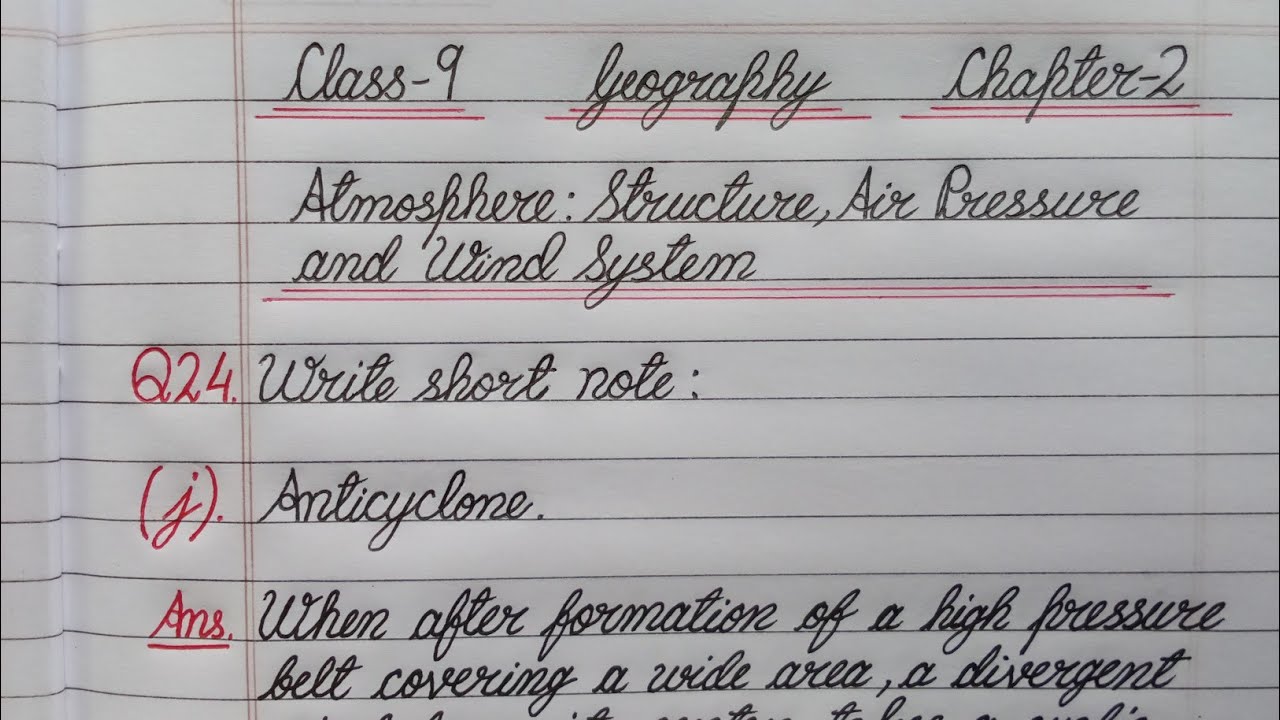 Class-9 Geography Chapter-2
Atmosphere: Structure, Air Pressure
and Wind System
Q24. Write short note:
(j). Anticyclone.
Ans. When after formation of a high pressure
belt covering a wide area, a divergent